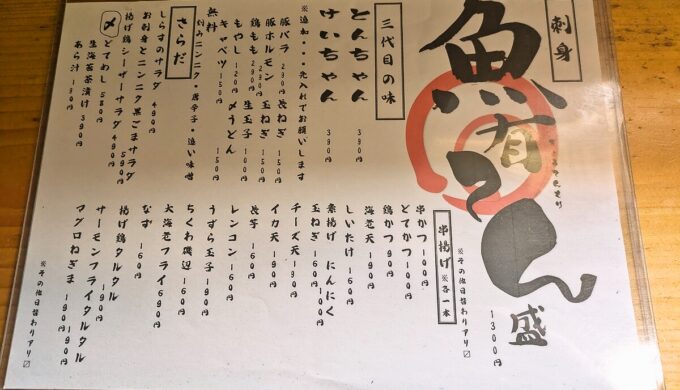 刺身
魚有こん盛
1300円
※その他日替わりアリ〼
三代目の味
とんちゃん 390円
けいちゃん 390円
※追加・・・先入れてお願いします
豚バラ 290円
長ねぎ 150円
豚ホルモン 290円
玉ねぎ 150円
鶏もも 290円
生玉子 100円
もやし 120円
〆うどん
キャベツ 150円
150円
無料
刻みニンニク・唐辛子・追い味噌
さらだ
しらすのサラダ 490円
お刺身とニンニク黒ごまサラダ 590円
揚げ鶏シーザーサラダ 490円
〆
どてめし 580円
生海苔茶漬け 390円
あら汁 190円
串揚げ ※各一本
串かつ 100円
どてかつ 100円
鶏かつ 90円
海老天 190円
しいたけ 160円
素揚げにんにく 100円
玉ねぎ 160円
チーズ天 190円
イカ天 190円
長芋 160円
レンコン 160円
うずら玉子 190円
ちくわ磯辺 160円
大海老フライ 690円
なす 160円
揚げ鶏タルタル 190円
サーモンフライタルタル 190円
マグロねぎま 190円
※その他日替わりアリ〼